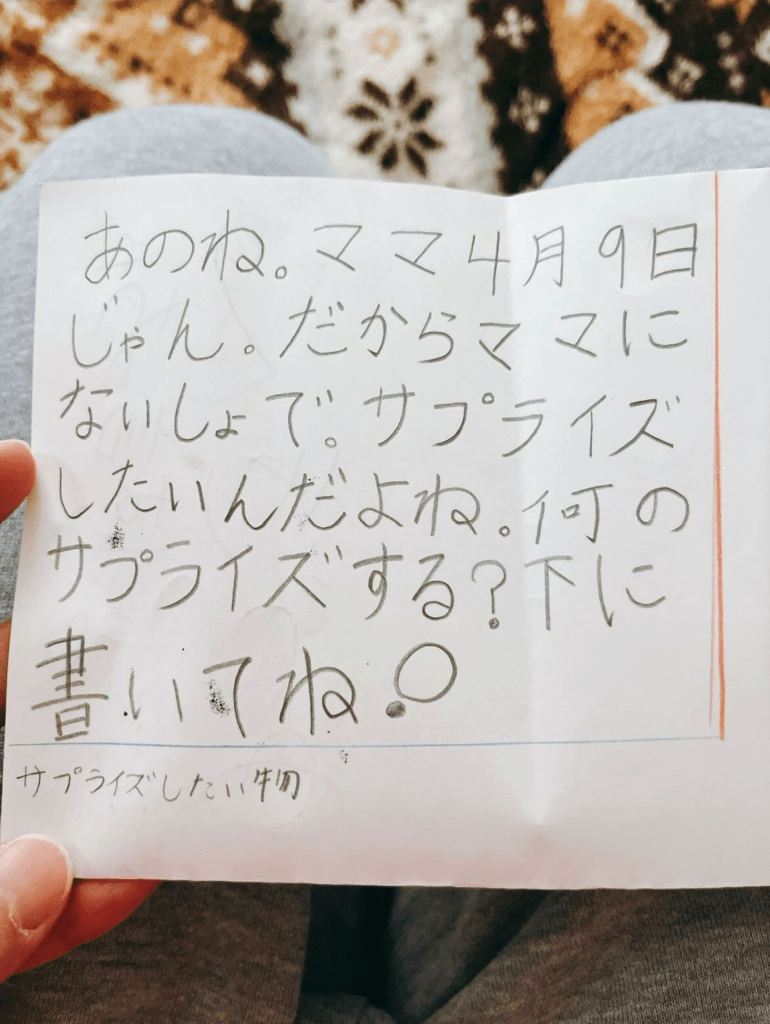 あのね。ママ4月9日
じゃん。だからママに
ないしょで。サプライズ
したいんだよね。何の
サプライズする?下に
書いてね!
サプライズしたい物